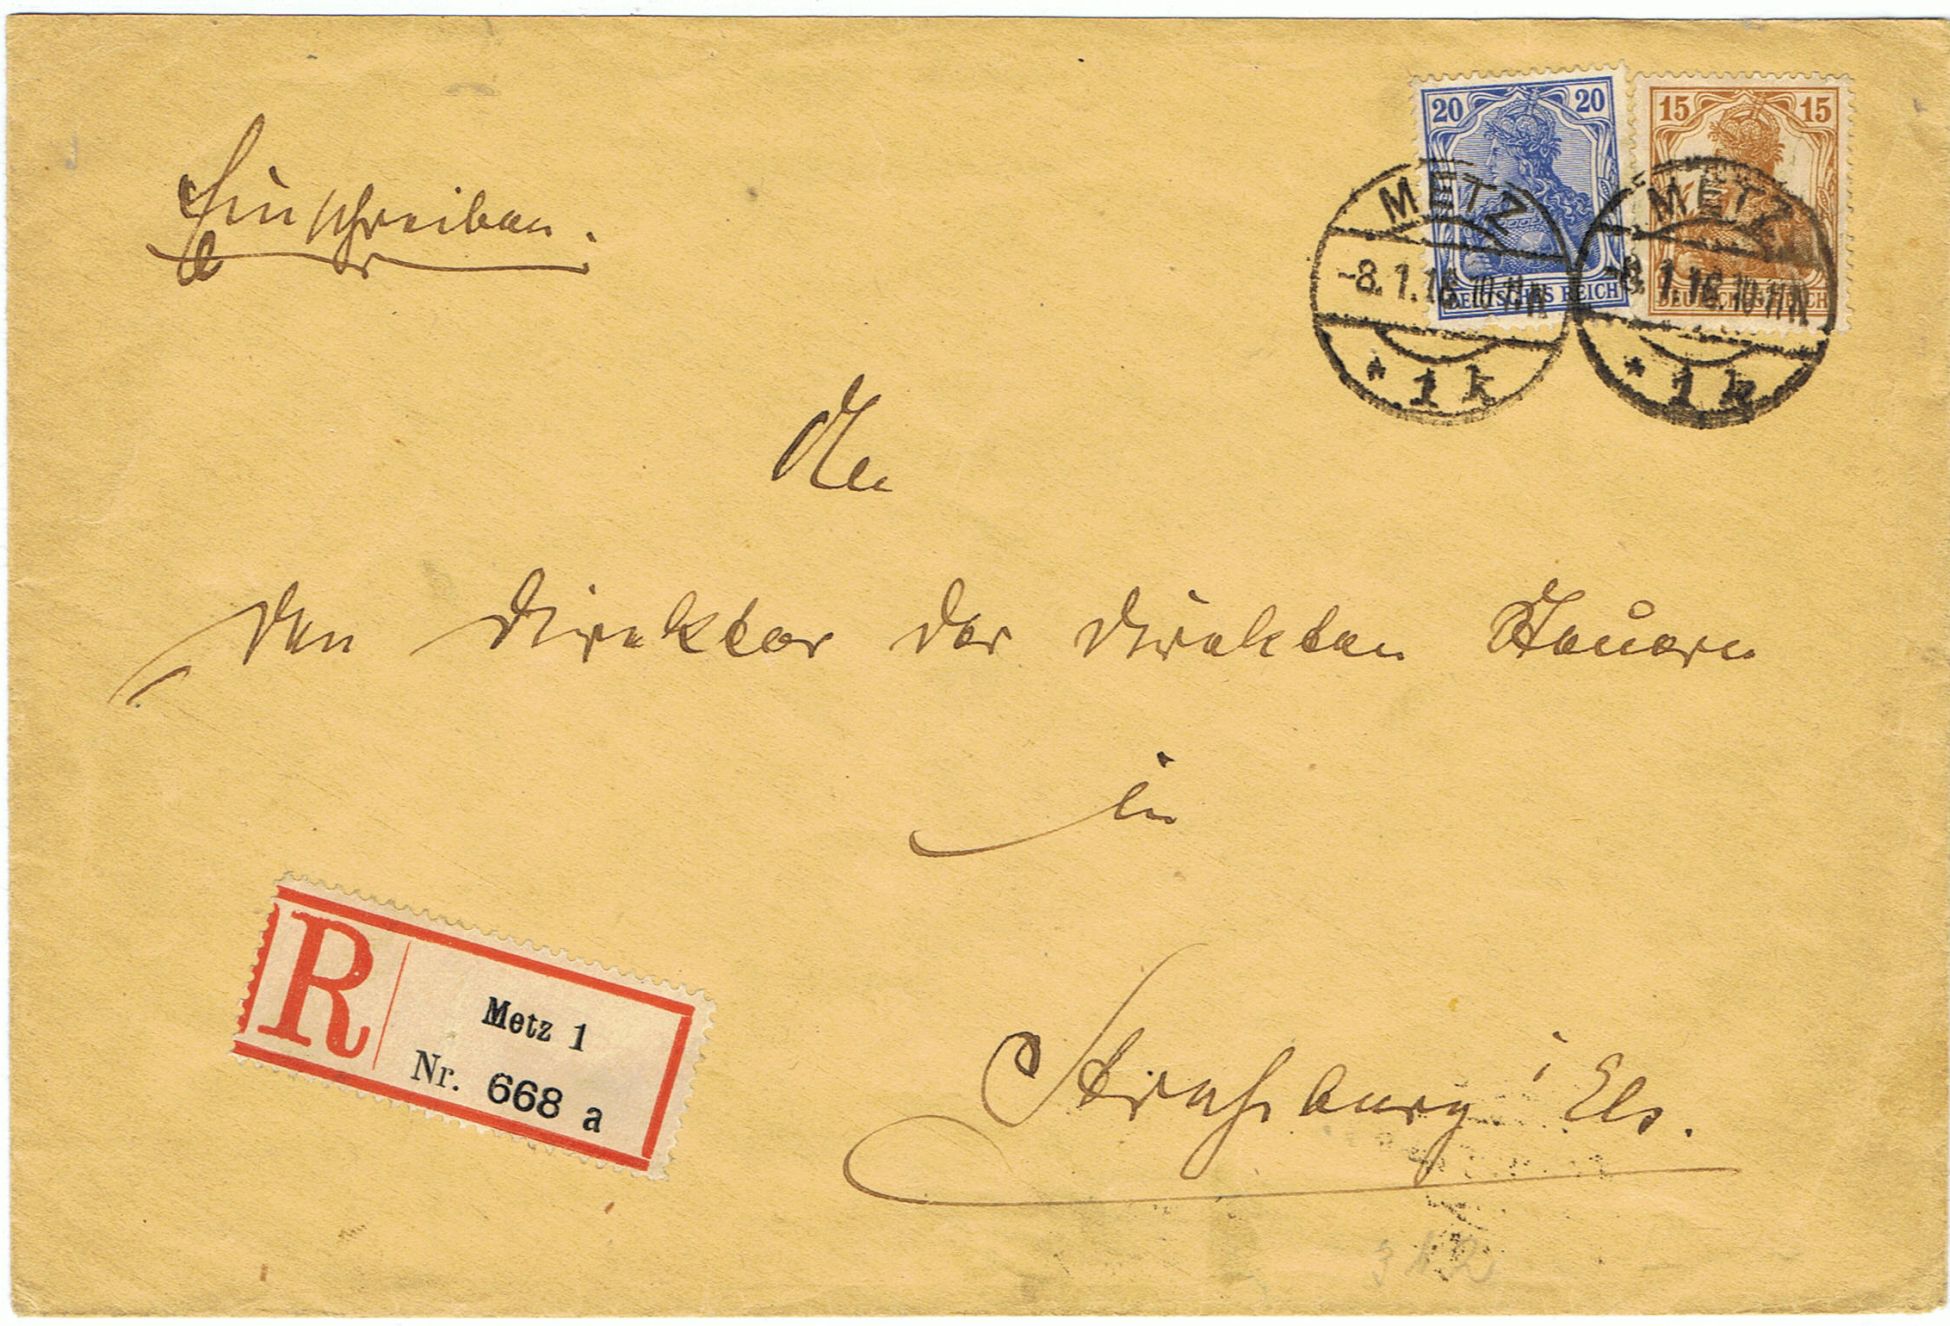 Einschreiben.
20 20
DEUTSCHES REICH
15 15
DEUTSCHES REICH
METZ
-8.1.16.10-11N.
* 1k
METZ
-8.1.16.10-11N.
* 1k
An
den Direktor der direkten Steuern
in
Straßburg i Els.
R
Metz 1
Nr. 668 a